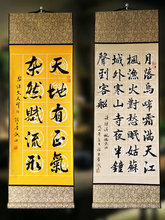 天地有正氣
杂然賦流形
月落烏啼霜滿天江
楓漁火對愁眠姑蘇
城外寒山寺夜半鐘
聲到客船